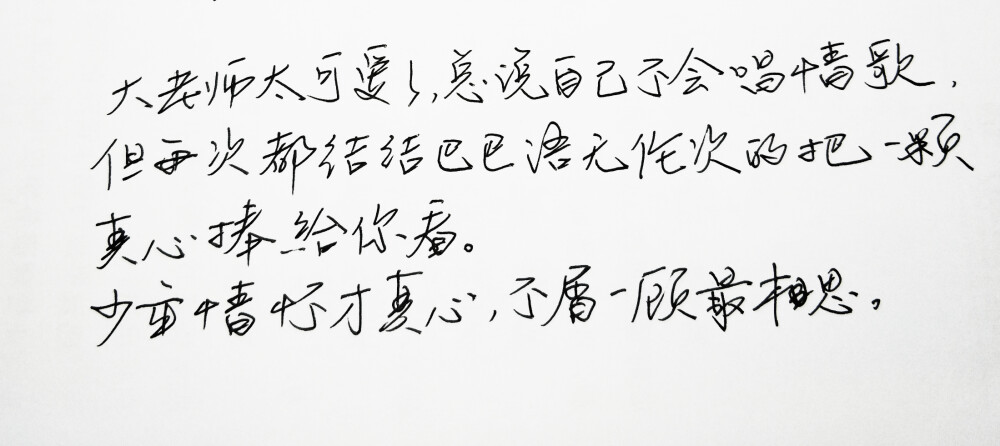 大老师太可爱了,总说自己不会唱情歌,
但每次都结结巴巴语无伦次的把一颗
真心捧给你看。
少情怀才真心,不屑一顾最相思。